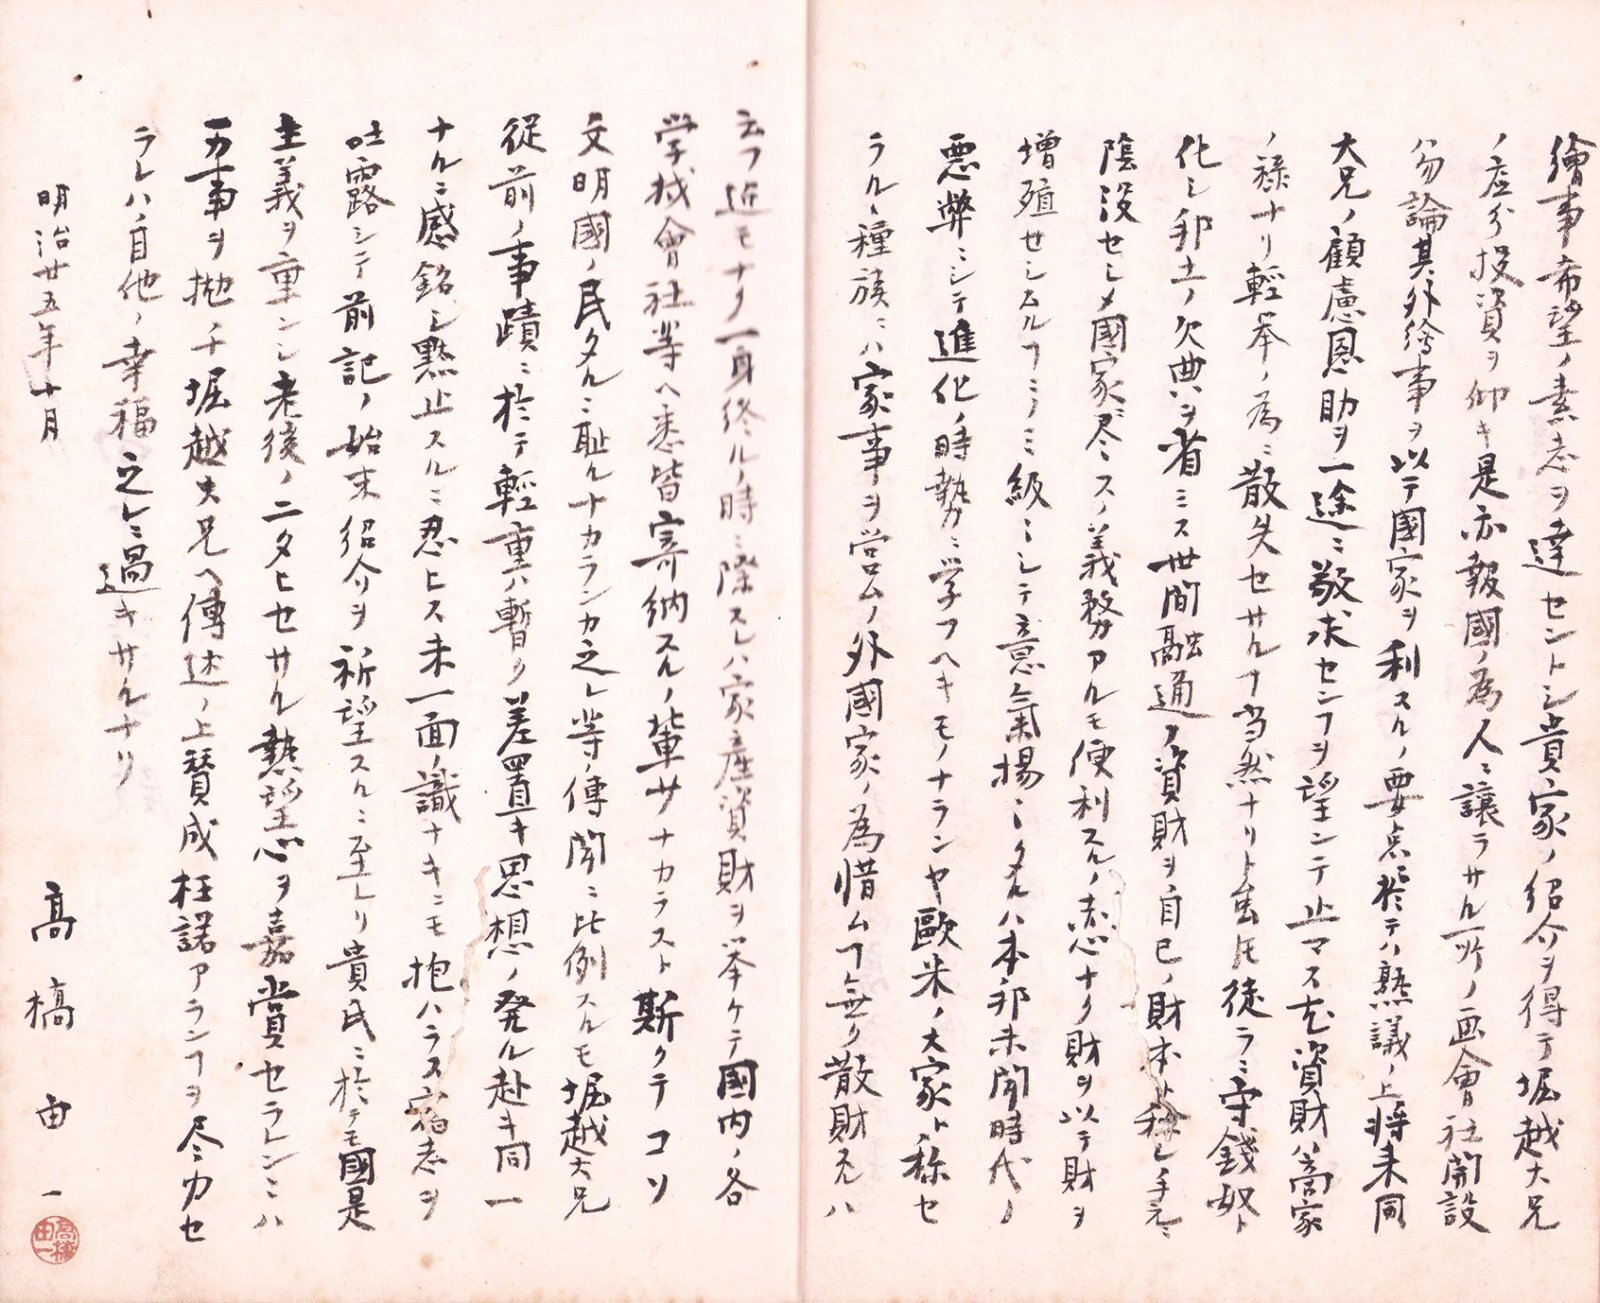 繪事希望ノ素志ヲ達セントシ貴家ノ紹介ヲ得テ堀越大兄
ノ応分投資ヲ仰キ是亦報國ノ為人ニ讓ラサル所ノ画會社開設
ハ勿論其外繪事ヲ以テ國家ヲ利スルノ要点ニ於テハ熟議ノ上将来同
大兄ノ顧慮恩助ヲ一途ニ敬求センヿヲ望ンテ止マス尤資財ハ高家
ノ禄ナリ輕举ノ為ニ散失セサルヿ当然ナリト虽𪜈徒ラニ守錢奴ト
化シ邦土ノ欠典ヲ省ミス世間融通ノ資財ヲ自己ノ財本ト称シ手元ニ
陰没セシメ國家ニ尽スノ義務アルモ便利スルノ志ナク財ヲ以テ財ヲ
増殖セシムルヿニノミ級〻シテ意氣揚〻タルハ本邦未開時代ノ
悪弊ニシテ進化ノ時勢ニ学フヘキモノナランヤ歐米ノ大家ト称セ
ラルヽ種族ニハ家事ヲ営ムノ外國家ノ為惜ムヿ無ク散財スルハ
云フ迄モナク一身終ルノ時ニ際スレハ家産資財ヲ举ケテ國内ノ各
学校會社等ヘ悉皆寄納スルノ輩サナカラスト斯クテコソ
文明國ノ民タルニ恥ルナカランカ之レ等ノ傳聞ニ比例スルモ堀越大兄
従前ノ事蹟ニ於テ輕重ハ暫ク差置キ思想ノ発ル赴キ同一
ナルニ感銘シ黙止スルニ忍ヒス未一面ノ識ナキニモ抱ハラス宿志ヲ
吐露シテ前記ノ始末紹介ヲ祈望スルニ至レリ貴氏ニ於テモ國是
主義ヲ重ンシ老後ノ二タヒセサル熱望心ヲ嘉賞セラレンニハ
万事ヲ抛チ堀越大兄ヘ傳述ノ上賛成枉諾アランヿヲ尽力セ
ラレハ自他ノ幸福之レニ過キサルナリ
明治廿五年十月
髙橋由一
髙橋由一